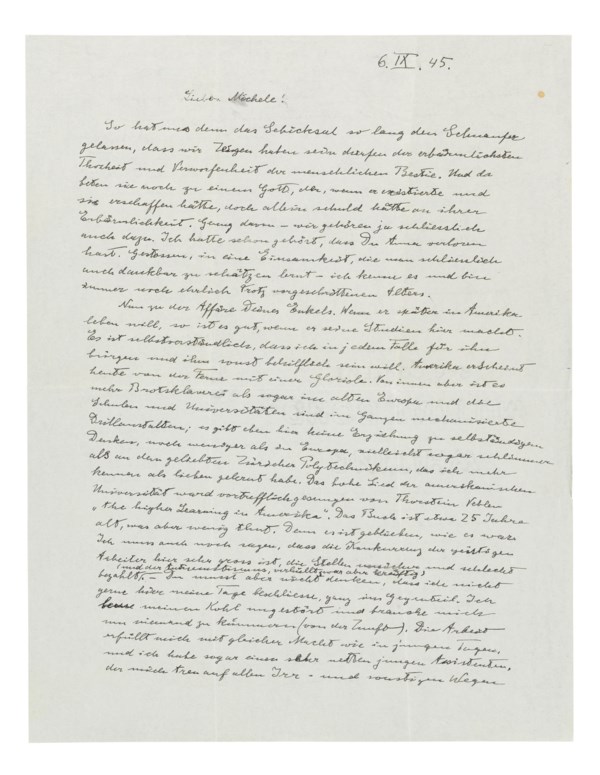 6. IX. 45.
Lieber Michele!
So hat uns denn das Schicksal so lang den Schnaufer
gelassen, dass wir Zeugen haben sein duerfen der erbärmlichsten
Thorheit und Verworfenheit der menschlichen Bestie. Und da
beten sie noch zu einem Gott, der, wenn er existierte und
sie erschaffen hätte, doch allein schuld hätte an ihrer
Erbärmlichkeit. Genug davon - wir gehören ja schliesslich
auch dazu. Ich hatte schon gehört, dass Du Anna verloren
hast. Gestossen, in eine Einsamkeit, die man schliesslich
auch dankbar zu schätzen lernt - ich kenne es und bin
immer noch ehrlich trotz vorgeschrittenen Alters.
Nun zu der Affäre Deines Enkels. Wenn er später in Amerika
leben will, so ist es gut, wenn er seine Studien hier macht.
Es ist selbstverständlich, dass ich in jedem Falle für ihn
bürgen und ihm sonst behilflich sein will. Amerika erscheint
heute von der Ferne mit einer Gloriole. Von innen aber ist es
mehr Brotsklaverei als sogar im alten Europa und die
Schulen und Universitäten sind im Ganzen mechanisierte
Drillanstalten; es gibt eben hier keine Erziehung zu selbständigem
Denken, noch weniger als in Europa, vielleicht sogar schlimmer
als an dem geliebten Züricher Polytechnikum, das ich mehr
kennen als lieben gelernt habe. Das hohe Lied der amerikanischen
Universität ward vortrefflich gesungen von Thorstein Veblen
„the higher Learning in Amerika". Das Buch ist etwa 25 Jahre
alt, was aber wenig thut. Denn es ist geblieben, wie es war.
Ich muss auch noch sagen, dass die Konkurrenz der geistigen
Arbeiter hier sehr gross ist, die Stellen unsicher und schlecht
(und der Antisemitismus, verhüllt zwar aber kräftig)
bezahlt. - Du musst aber nicht denken, dass ich nicht
gerne hier meine Tage beschliesse, ganz im Gegenteil. Ich
baue meinen Kohl ungestört und brauche mich
um niemand zu kümmern (von der Zunft). Die Arbeit
erfüllt mich mit gleicher Macht wie in jungen Tagen,
und ich habe sogar einen sehr netten jungen Assistenten,
der mich treu auf allen Irr - und sonstigen Wegen